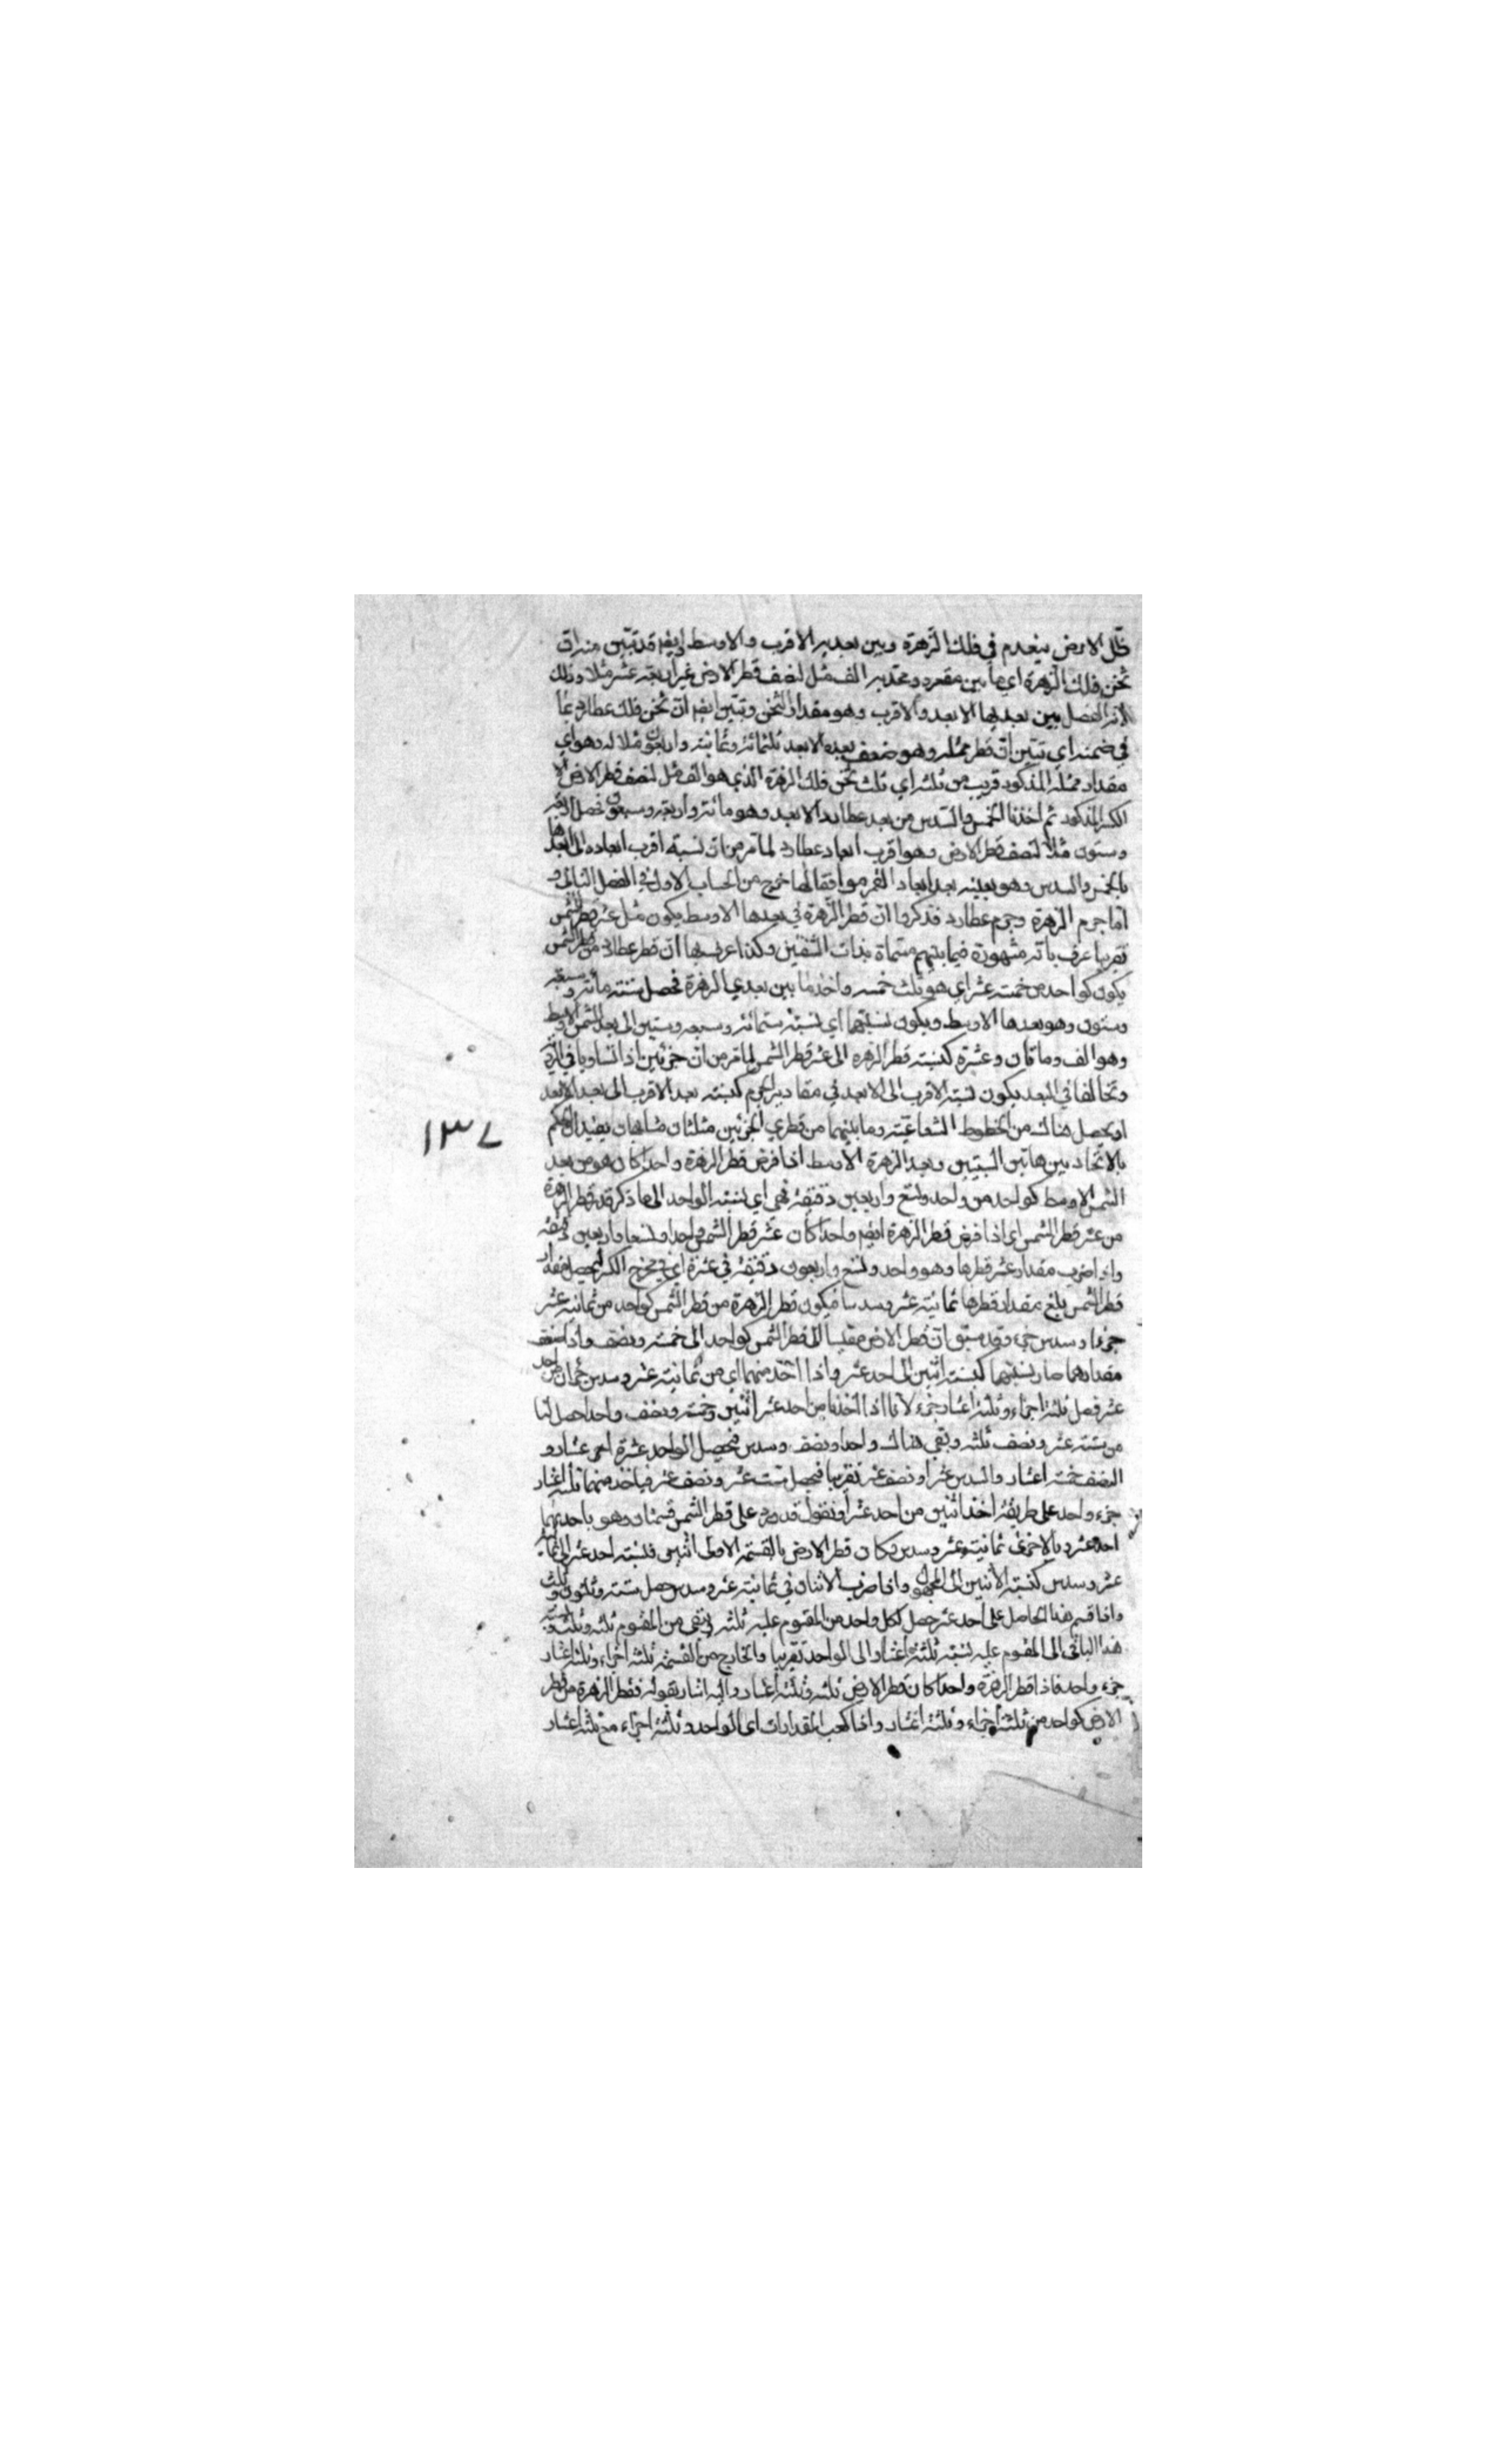 ظل الارض ينعدم فى فلك الزهرة وبين بعديه الاقرب والاوسط ايضا قد تبين منه ان
ثخن فلك الزهرة اي ما بين مقعره ومحدبه الف مثل لنصف قطر الارض غير اربعة عشر مثلا وذلك
لانه الفضل بين بعديها الابعد والاقرب وهو مقدار الثخن وتبين ايضا ان ثخن فلك عطارد بما
في ضمنه اي تبين ان قطر ممثله وهو ضعف بعده الابعد ثلثمائة وثمانية واربعون مثلا له وهو اي
مقدار ممثله المذكور قريب من ثلثه اي ثلث ثخن فلك الزهرة الذي هو الف مثل لنصف قطر الارض الا
الكسر المذكور ثم اخذنا الخمس والسدس من بعد عطارد الابعد وهو مائة واربعة وسبعون فحصل اربعة
وستون مثلا لنصف قطر الارض وهو اقرب ابعاد عطارد لما مر من ان نسبة اقرب ابعاده الى ابعدها
بالخمس والسدس وهو بعينه بعد ابعاد القمر موافقا لما خرج من الحساب الاول في الفصل الثاني و
اما جرم الزهرة وجرم عطارد فذكروا ان قطر الزهرة في بعدها الاوسط يكون مثل عشر قطر الشمس
تقريبا عرف بالة مشهورة فيما بينهم مسماة بذات الثقبتين وكذا عرف بها ان قطر عطارد من قطر الشمس
يكون كواحد من خمسة عشر اي هو ثلث خمسه واخذ ما بين بعدي الزهرة فحصل ستة مائة وسبعة
وستون وهو بعدها الاوسط ويكون نسبتهما اي نسبة ستمائة وسبعه وستين الى بعد الشمس الاوسط
وهو الف ومائتان وعشرة كنسبة قطر الزهره الى عشر قطر الشمس لما مر من ان جزئين اذا تساويا في الرؤية
وتخالفا في البعد يكون نسبة الاقرب الى الابعد في مقادير الجرم كنسبة بعد الاقرب الى بعد الابعد
اذ يحصل هناك من الخطوط الشعاعية وما بينهما من قطري الجرمين مثلثان متشابهان يفيدان الحكم
بالاتحاد بين هاتين النسبتين وبعد الزهرة الاوسط اذا فرض قطر الزهرة واحدا كان هو من بعد
الشمس الاوسط كواحد من واحد وتسع واربعين دقيقة فهي اي نسبة الواحد الى ما ذكر قدر قطر الزهرة
من عشر قطر الشمس اي اذا فرض قطر الزهرة ايضا واحدا كان عشر قطر الشمس واحدا وتسعا واربعين دقيقة
واذا ضرب مقدار عشر قطرها وهو واحد وتسع واربعون دقيقة في عشرة اي في مخرج الكسر ليحصل مقدار
قطر الشمس بلغ مقدار قطرها ثمانية عشر وسدسا فيكون قطر الزهرة من قطر الشمس كواحد من ثمانية عشر
جزءا وسدس جزء وقد سبق ان قطر الارض مقيسا الى قطر الشمس كواحد الى خمسة ونصف واذا ضعف
مقدارهما صار نسبتهما كنسبة اثنين الى احد عشر واذا اخذ منهما اي من ثمانية عشر وسدس جزان من احد
عشر فصل ثلثة اجزاء وثلثة اعشار جزء لانا اذا اخذنا من احد عشر اثنين وخمسة ونصف واحدا حصل لنا
من ستة عشر ونصف ثلثه وبقي هناك واحد ونصف وسدس فحصل الواحد عشرة اعني اعشار و
النصف خمسة اعشار والسدس عشرا ونصف عشر تقريبا فحصل ستة عشر ونصف عشر فياخذ منهما ثلثة اعشار
جزء واحد على طريقة اخذ اثنين من احد عشر او نقول قد ورد على قطر الشمس قسمتان وهو باحديهما
احد عشر وبالاخرى ثمانية عشر وسدس وكان قطر الارض بالقسمة الاولى اثنين فنسبة احد عشر الى ثمانية
عشر وسدس كنسبة الاثنين الى المجهول واذا ضرب الاثنان في ثمانية عشر وسدس حصل ستة وثلثون وثلث
واذا قسم هذا الحاصل على احد عشر حصل لكل واحد من المقسوم عليه ثلثه وبقي من المقسوم ثلثه وثلث ونسبة
هذا الباقي الى المقسوم عليه نسبة ثلثة اعشار الى الواحد تقريبا والخارج من القسمة ثلثة اجزاء وثلثة اعشار
جزء واحد فاذا قطر الزهرة واحدا كان قطر الارض ثلثه وثلثة اعشار واليه اشار بقوله فقطر الزهرة من قطر
الارض كواحد من ثلثة اجزاء وثلثة اعشار واذا كعب المقداران اي الواحد وثلثة اجزاء مع ثلثة اعشار
١٣٧